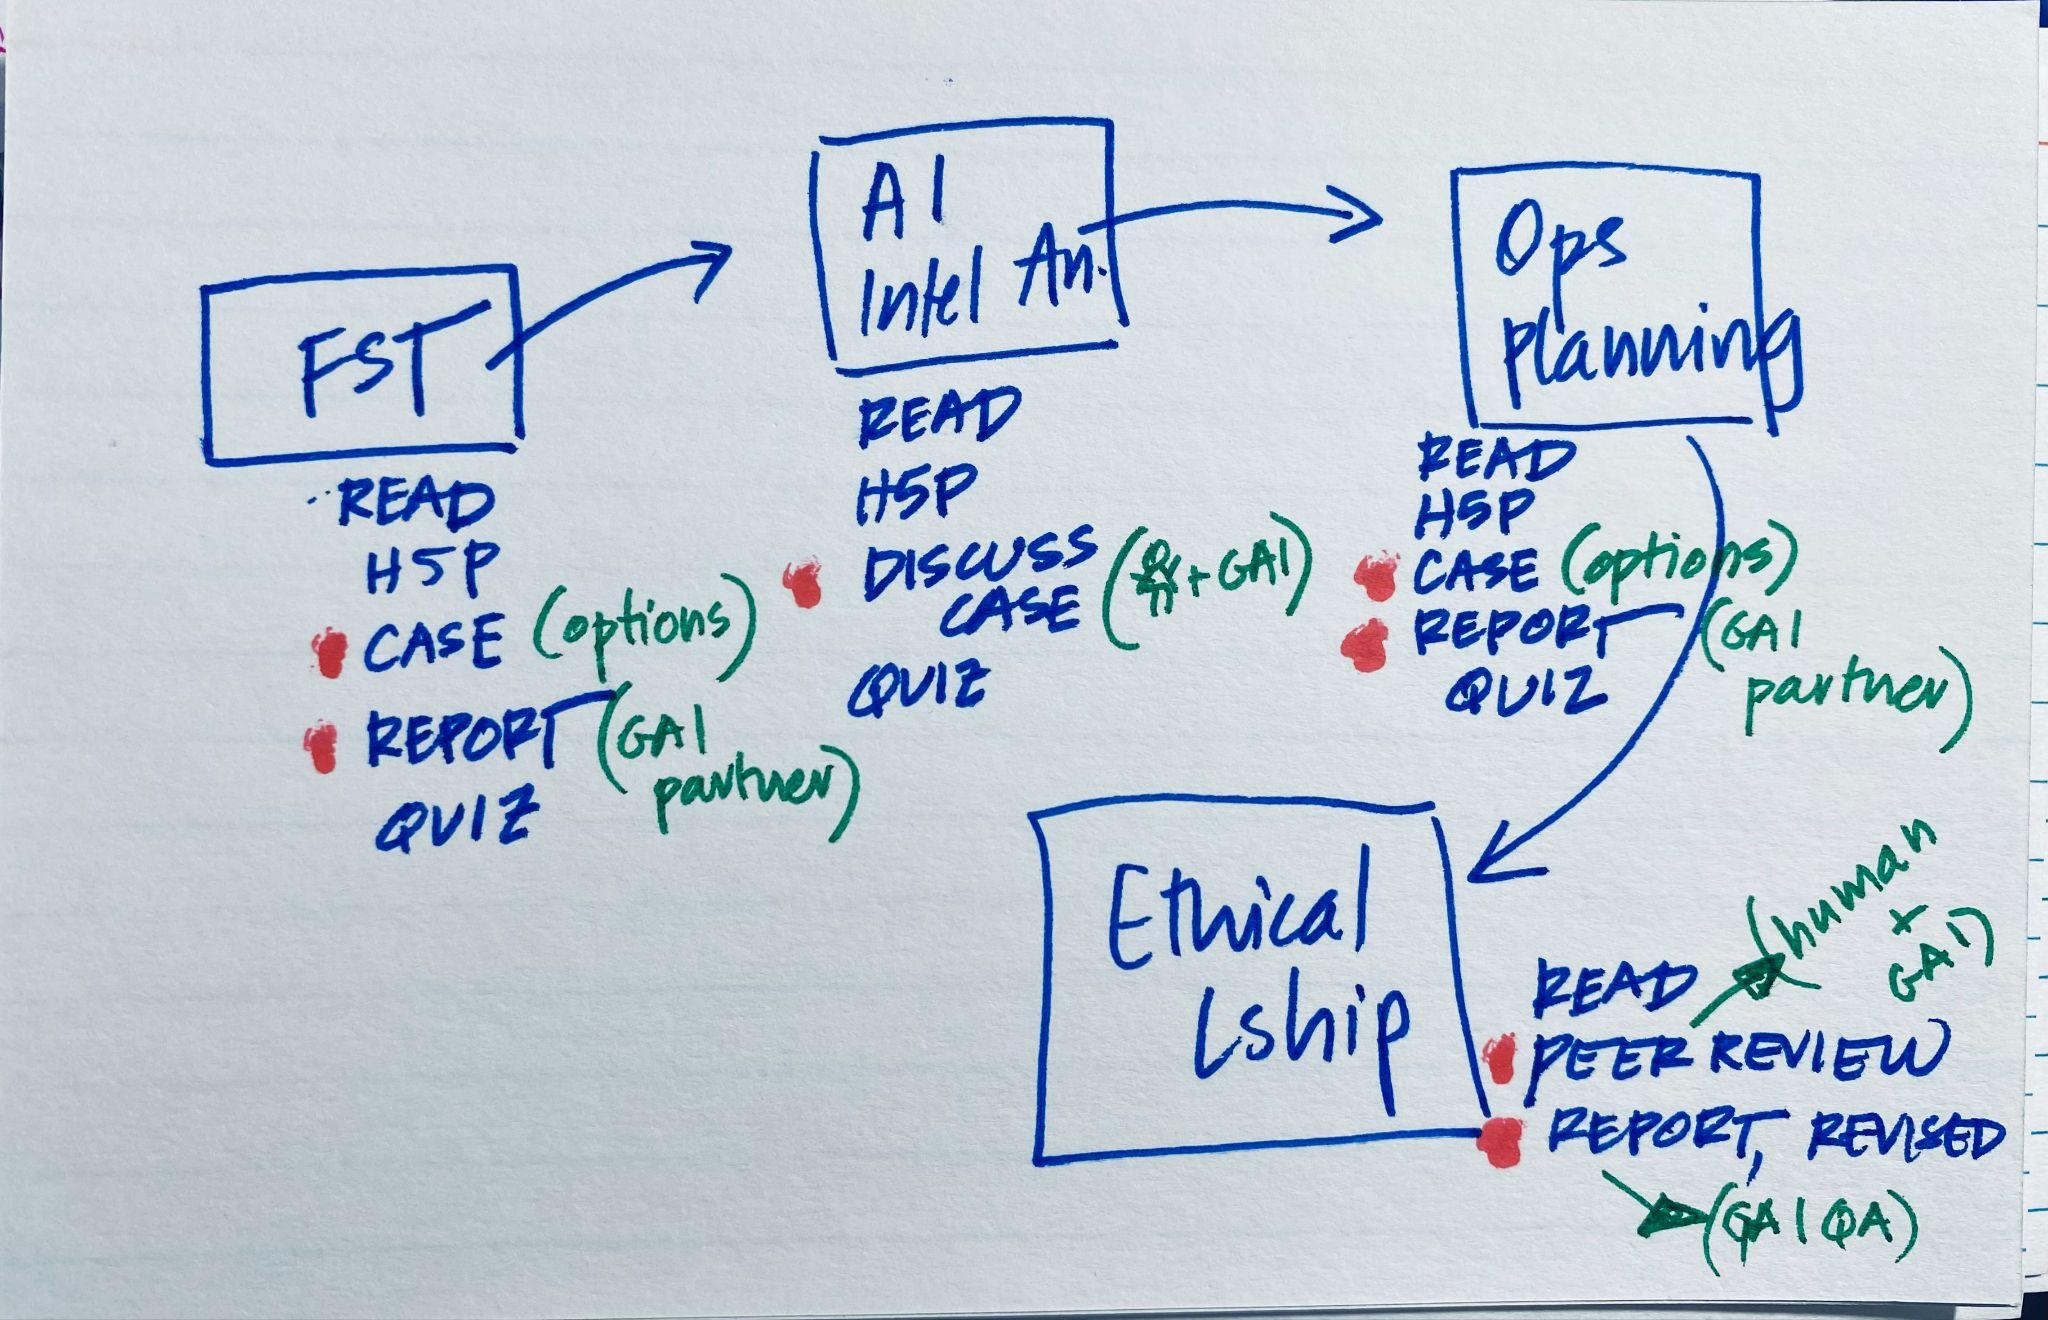 FST
READ
H5P
CASE (options)
REPORT (GAI
partner)
QUIZ
AI
Intel An.
READ
H5P
DISCUSS
CASE ( + GAI)
QUIZ
Ops
planning
READ
H5P
CASE (options)
REPORT (GAI
partner)
QUIZ
Ethical
Lship
READ
PEER REVIEW
(human
+
GAI)
REPORT, REVISED
(GAI QA)